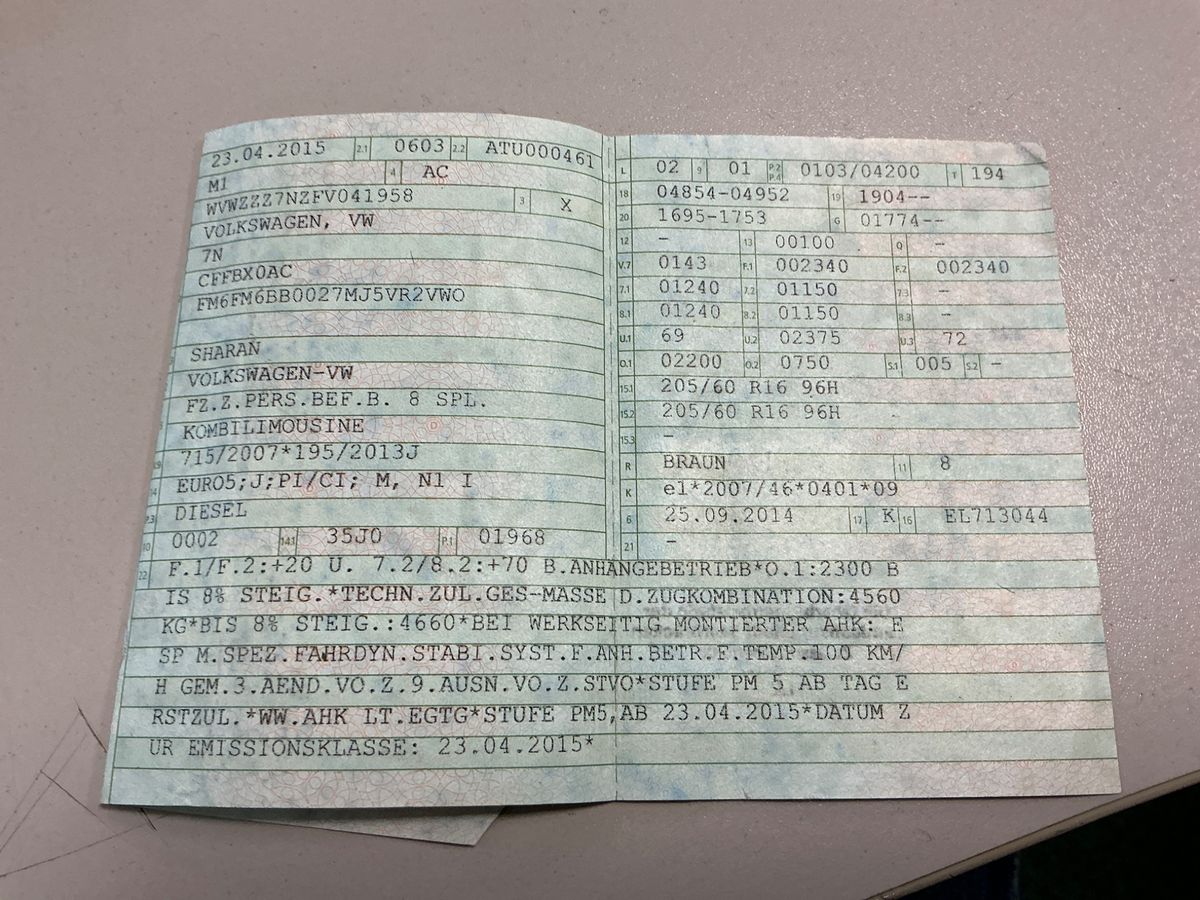 23.04.2015 2.1 0603 2.2 ATU000461
M1 4 AC
WVWZZZ7NZFV041958 3 X
VOLKSWAGEN, VW
7N
CFFBX0AC
FM6FM6BB0027MJ5VR2VWO
SHARAN
VOLKSWAGEN-VW
FZ.Z.PERS.BEF.B. 8 SPL.
KOMBILIMOUSINE
715/2007*195/2013J
14 EURO5;J;PI/CI; M, N1 I
P.3 DIESEL
10 0002 14.1 35J0 P.1 01968
L 02 9 01 P.2 P.4 0103/04200 T 194
18 04854-04952 19 1904--
20 1695-1753 G 01774--
12 - 13 00100 Q -
V.7 0143 F.1 002340 F.2 002340
7.1 01240 7.2 01150 7.3 -
8.1 01240 8.2 01150 8.3 -
U.1 69 U.2 02375 U.3 72
O.1 02200 O.2 0750 S.1 005 S.2 -
15.1 205/60 R16 96H
15.2 205/60 R16 96H
15.3 -
R BRAUN 11 8
K e1*2007/46*0401*09
6 25.09.2014 17 K 16 EL713044
21 -
22 F.1/F.2:+20 U. 7.2/8.2:+70 B.ANHÄNGEBETRIEB*O.1:2300 B
IS 8% STEIG.*TECHN.ZUL.GES-MASSE D.ZUGKOMBINATION:4560
KG*BIS 8% STEIG.:4660*BEI WERKSEITIG MONTIERTER AHK: E
SP M.SPEZ.FAHRDYN.STABI.SYST.F.ANH.BETR.F.TEMP.100 KM/
H GEM.3.AEND.VO.Z.9.AUSN.VO.Z.STVO*STUFE PM 5 AB TAG E
RSTZUL.*WW.AHK LT.EGTG*STUFE PM5,AB 23.04.2015*DATUM Z
UR EMISSIONSKLASSE: 23.04.2015*